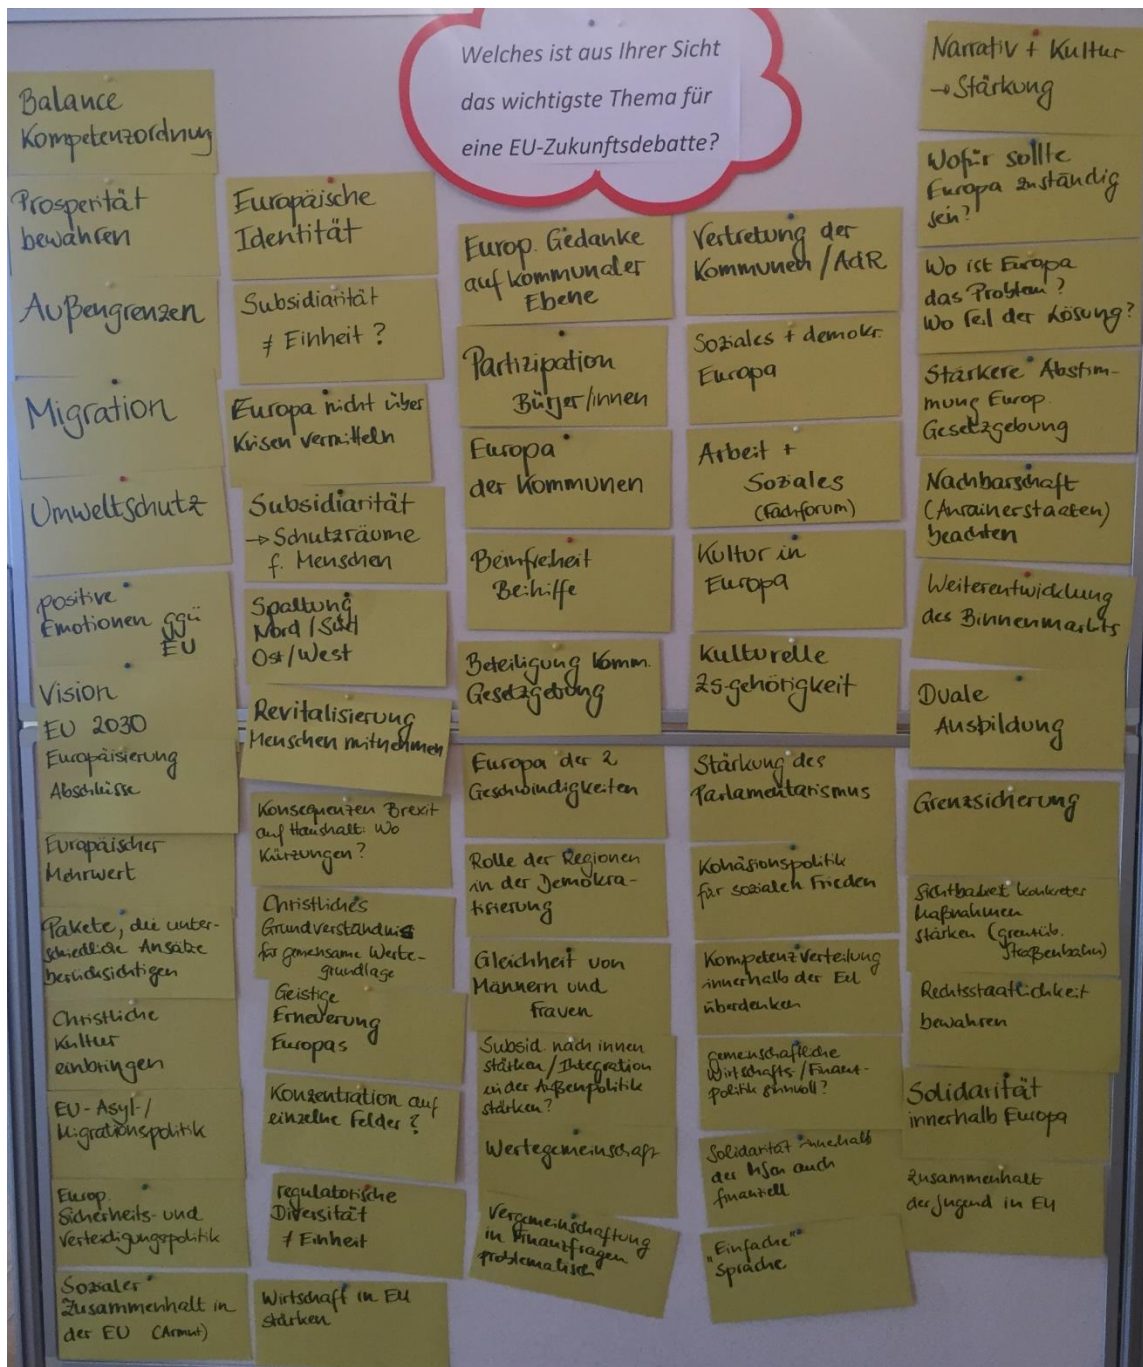 Welches ist aus Ihrer Sicht
das wichtigste Thema für
eine EU-Zukunftsdebatte?
Balance
Kompetenzordnung
Prosperität
bewahren
Außengrenzen
Migration
Umweltschutz
positive
Emotionen ggü
EU
Vision
EU 2030
Europäisierung
Abschlüsse
Europäischer
Mehrwert
Pakete, die unter-
schiedliche Ansätze
berücksichtigen
Christliche
Kultur
einbringen
EU-Asyl-/
Migrationspolitik
Europ.
Sicherheits- und
Verteidigungspolitik
Sozialer
Zusammenhalt in
der EU (Armut)
Europäische
Identität
Subsidiarität
≠ Einheit?
Europa nicht über
Krisen vermitteln
Subsidiarität
→ Schutzräume
f. Menschen
Spaltung
Nord/Süd
Ost/West
Revitalisierung
Menschen mitnehmen
Konsequenzen Brexit
auf Haushalt: Wo
Kürzungen?
Christliches
Grundverständnis
für gemeinsame Werte-
grundlage
Geistige
Erneuerung
Europas
Konzentration auf
einzelne Felder?
regulatorische
Diversität
≠ Einheit
Wirtschaft in EU
stärken
Europ. Gedanke
auf kommunaler
Ebene
Partizipation
Bürger/innen
Europa
der Kommunen
Beinfreiheit
Beihilfe
Beteiligung komm.
Gesetzgebung
Europa der 2
Geschwindigkeiten
Rolle der Regionen
in der Demokra-
tisierung
Gleichheit von
Männern und
Frauen
Subsid. nach innen
stärken/Integration
in der Außenpolitik
stärken?
Wertegemeinschaft
Vergemeinschaftung
in Finanzfragen
problematisch
Vertretung der
Kommunen/AdR
Soziales + demokr.
Europa
Arbeit +
Soziales
(Fachforum)
Kultur in
Europa
Kulturelle
Zs-gehörigkeit
Stärkung des
Parlamentarismus
Kohäsionspolitik
für sozialen Frieden
Kompetenzverteilung
innerhalb der EU
überdenken
gemeinschaftliche
Wirtschafts-/Finanz-
politik sinnvoll?
Solidarität innerhalb
der MSen auch
finanziell
"Einfache"
Sprache
Narrativ + Kultur
→ Stärkung
Wofür sollte
Europa zuständig
sein?
Wo ist Europa
das Problem?
Wo Teil der Lösung?
Stärkere Abstim-
mung Europ.
Gesetzgebung
Nachbarschaft
(Anrainerstaaten)
beachten
Weiterentwicklung
des Binnenmarkts
Duale
Ausbildung
Grenzsicherung
Sichtbarkeit konkreter
Maßnahmen
stärken (grenzüb.
Straßenbahn)
Rechtsstaatlichkeit
bewahren
Solidarität
innerhalb Europa
Zusammenhalt
der Jugend in EU